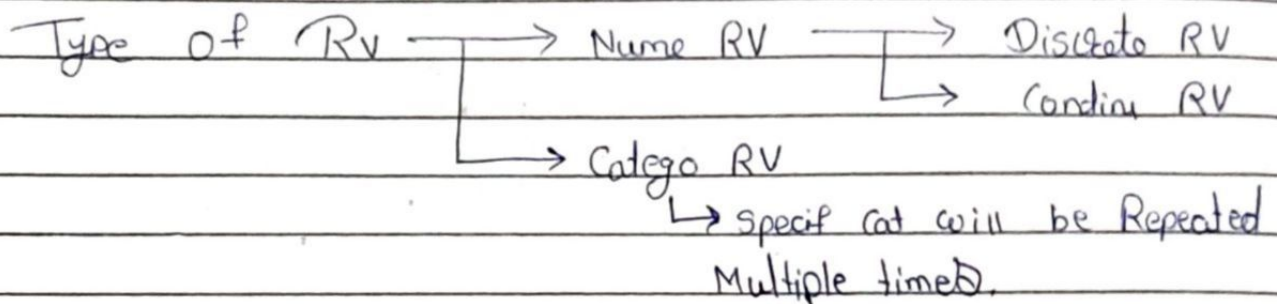 Type Of Rv → Nume RV → Discreto RV
→ Condinu RV
→ Catego RV
↳ specif Cat will be Repeated
Multiple times.